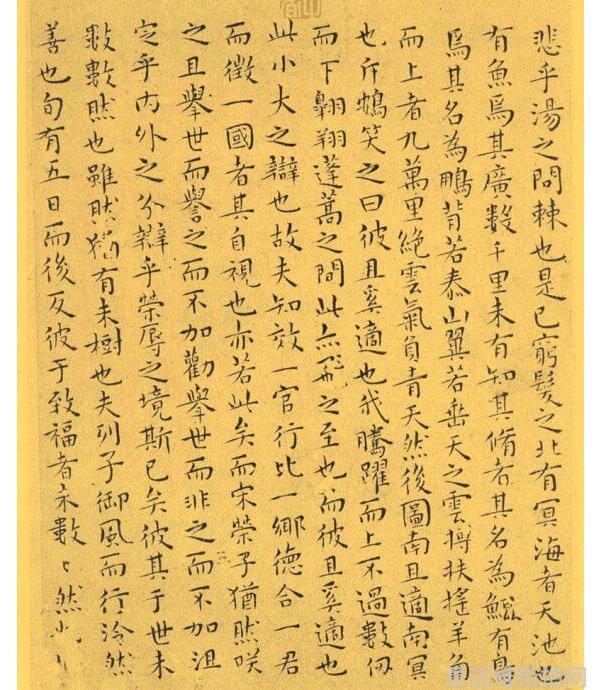 悲乎湯之問棘也是已窮髮之北有冥海者天池
有魚焉其廣數千里未有知其脩者其名為鯤有鳥
焉其名為鵬背若泰山翼若垂天之雲摶扶搖羊角
而上者九萬里絕雲氣負青天然後圖南且適南冥
也斥鴳笑之曰彼且奚適也我騰躍而上不過數仞
而下翱翔蓬蒿之間此亦飛之至也而彼且奚適也
此小大之辯也故夫知效一官行比一鄉德合一君
而徵一國者其自視也亦若此矣而宋榮子猶然咲
之且舉世而譽之而不加勸舉世而非之而不加沮
定乎內外之分辯乎榮辱之境斯已矣彼其于世未
數數然也雖然猶有未樹也夫列子御風而行泠然
善也旬有五日而後反彼于致福者未數〻然也